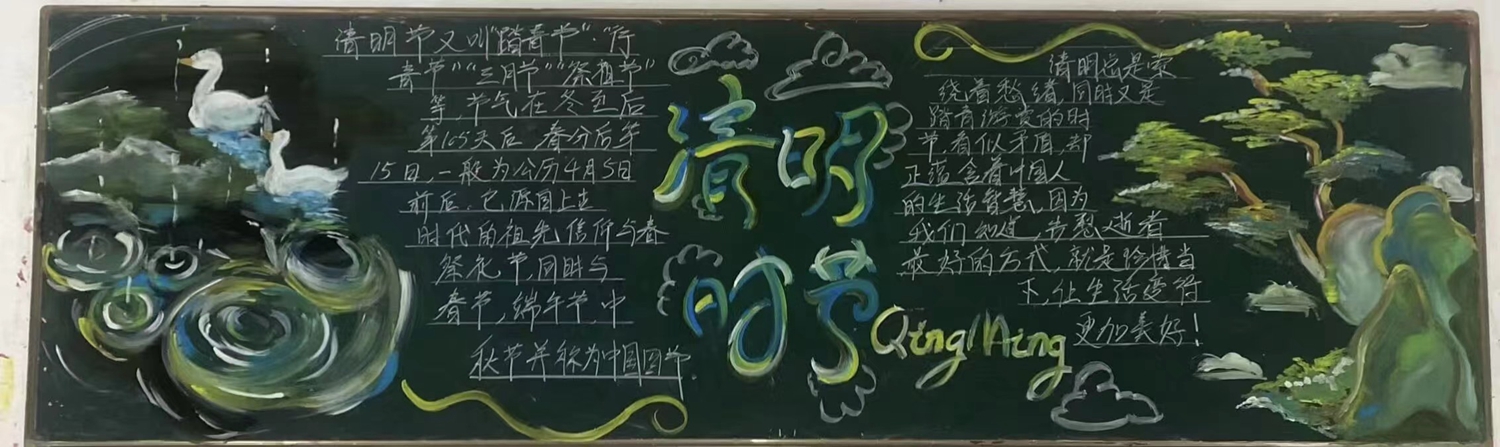 清明节又叫“踏青节”“行
青节”“三月节”“祭祖节”
等,节气在冬至后
第105天后,春分后第
15日,一般为公历4月5日
前后,它源自上古
时代的祖先信仰与春
祭礼节,同时与
春节,端午节,中
秋节并称为中国四节
清明
时节
QingMing
清明总是萦
绕着愁绪,同时又是
踏青游变的时
节,看似矛盾,却
正蕴含着中国人
的生活智慧,因为
我们知道,告慰逝者
最好的方式,就是珍惜当
下,让生活变得
更加美好!